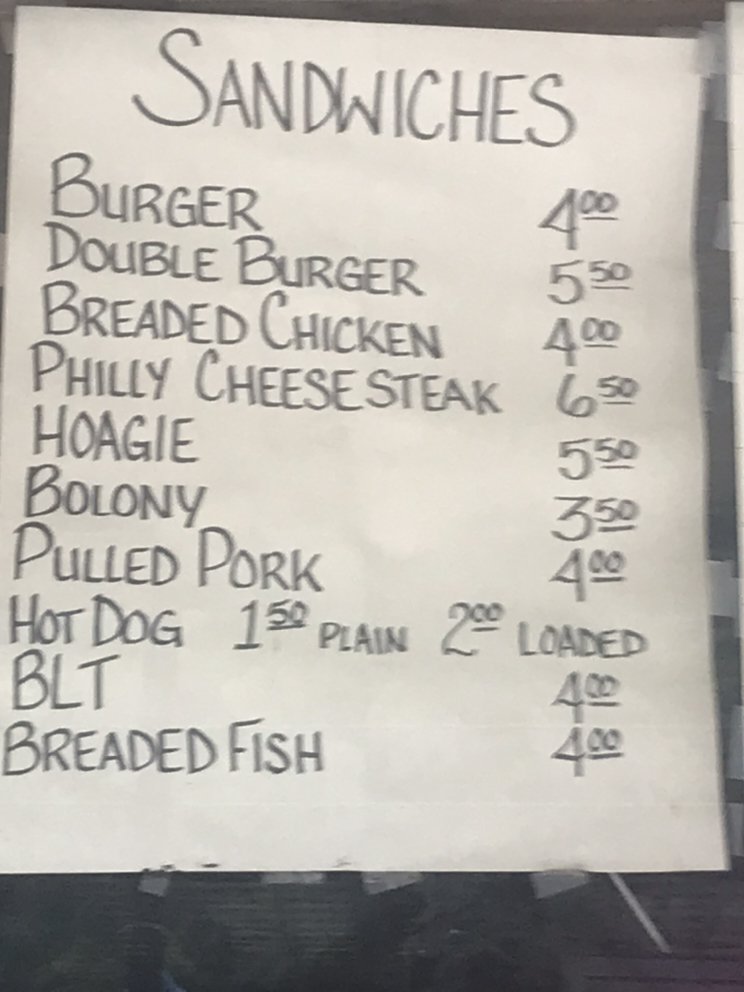 SANDWICHES
BURGER 4.00
DOUBLE BURGER 5.50
BREADED CHICKEN 4.00
PHILLY CHEESE STEAK 6.50
HOAGIE 5.50
BOLONY 3.50
PULLED PORK 4.00
HOT DOG 1.50 PLAIN 2.00 LOADED
BLT 4.00
BREADED FISH 4.00